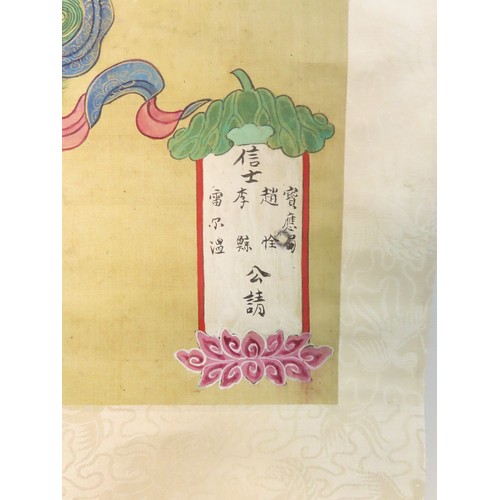 信士
寶應
趙恮
李縣
雷尔溫
公請